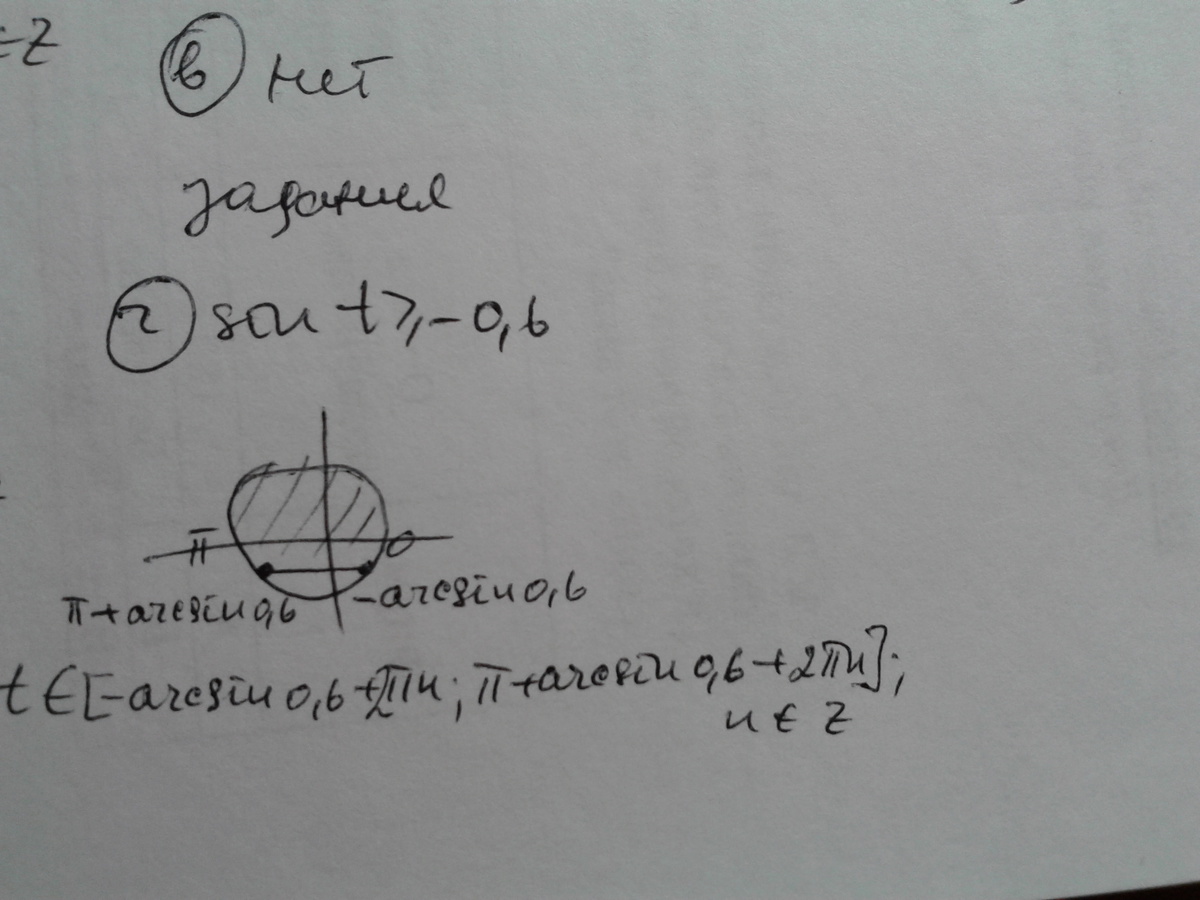 ∈Z
в) нет
задания
г) sin t ⩾ -0,6
π
0
π+arcsin 0,6
-arcsin 0,6
t∈[-arcsin 0,6+2πn; π+arcsin 0,6+2πn];
n∈Z